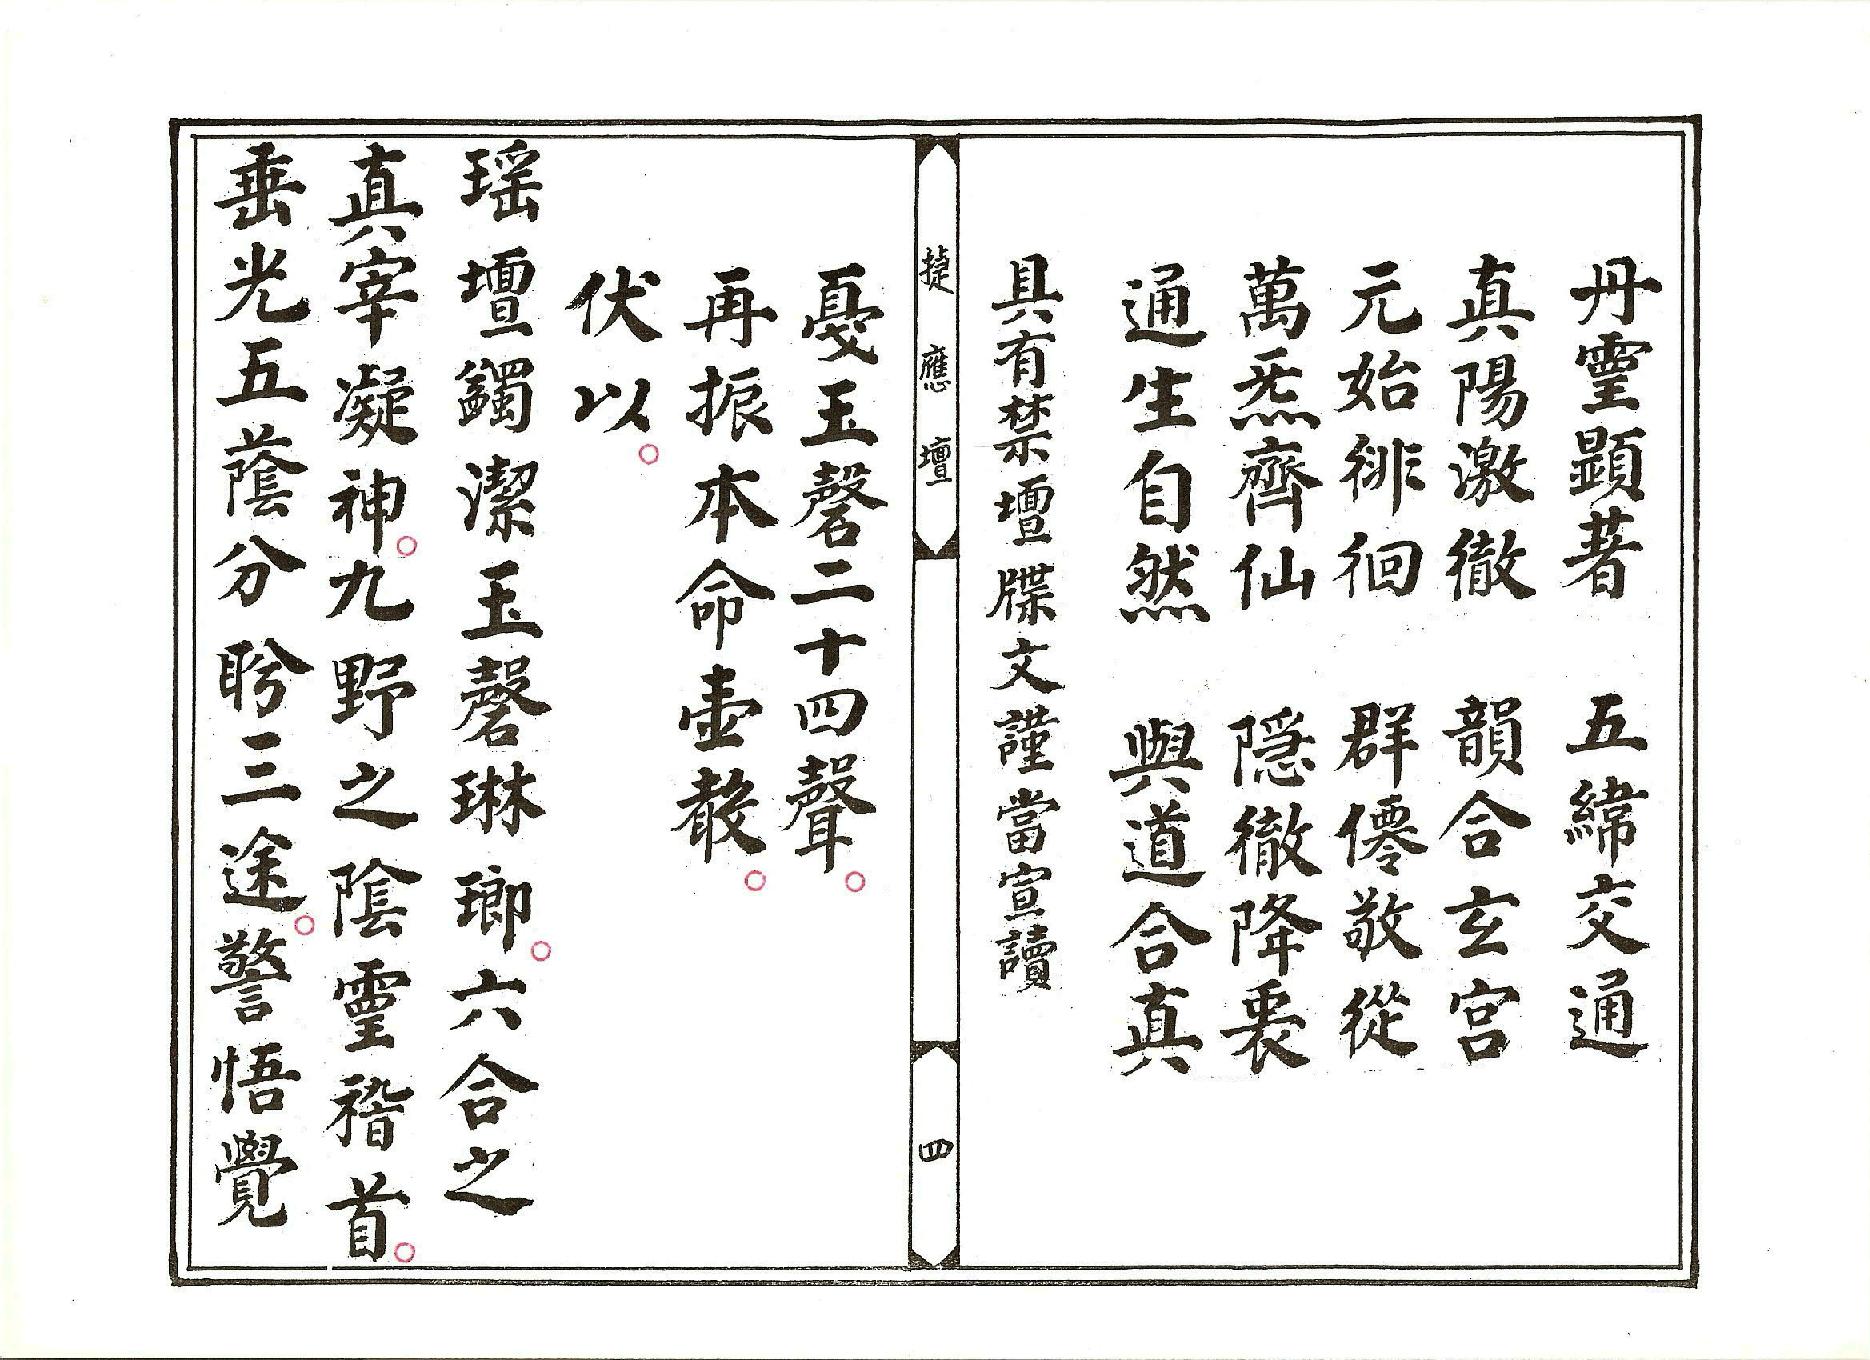 丹霊顕著　五緯交通
真陽激徹　韻合玄宮
元始徘徊　群僊敬從
萬炁齊仙　隱徹降
通生自然　與道合真
具有禁壇牒文謹當宣讀
捷應壇
四
戛玉磬二十四聲。
再振本命壺
伏以。
瑶壇蠲潔玉磬琳瑯。六合之
真宰凝神。九野之陰霊稽首。
垂光五蔭分肹三途。警悟覺